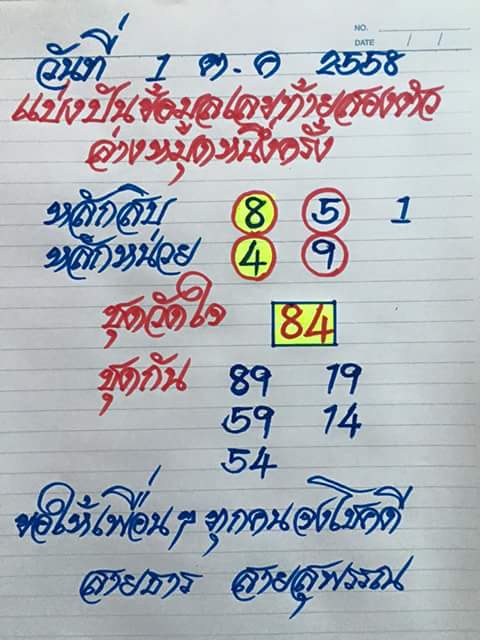 NO.
DATE / /
วันที่ 1 ต.ค 2558
แบ่งปันข้อมูลเลขท้ายสองตัว
ล่างหมุดหนึ่งครั้ง
หลักสิบ 8 5 1
หลักหน่วย 4 9
ชุดวัดใจ 84
ชุดกัน 89 19
59 14
54
ขอให้เพื่อนๆ ทุกคนจงโชคดี
สายธาร สายสุพรรณ